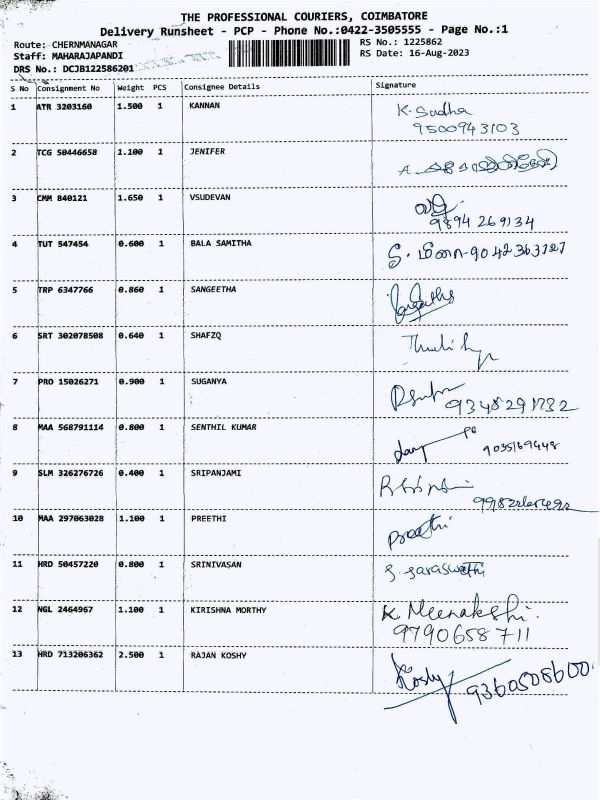 THE PROFESSIONAL COURIERS, COIMBATORE
Delivery Runsheet - PCP - Phone No.:0422-3505555 - Page No.:1
Route: CHERNMANAGAR
Staff: MAHARAJAPANDI
DRS No.: DCJB122586201
RS No.: 1225862
RS Date: 16-Aug-2023
S No Consignment No Weight PCS Consignee Details Signature
1 ATR 3203160 1.500 1 KANNAN K. Sudha
9500943103
2 TCG 50446658 1.100 1 JENIFER
3 CMM 840121 1.650 1 VSUDEVAN
9894 269134
4 TUT 547454 0.600 1 BALA SAMITHA
5 TRP 6347766 0.860 1 SANGEETHA
6 SRT 302078508 0.640 1 SHAFZQ
7 PRO 15026271 0.900 1 SUGANYA
8 MAA 568791114 0.800 1 SENTHIL KUMAR
9 SLM 326276726 0.400 1 SRIPANJAMI
10 MAA 297063028 1.100 1 PREETHI Preethi
11 HRD 50457220 0.800 1 SRINIVASAN S. Saraswathi
12 NGL 2464967 1.100 1 KIRISHNA MORTHY K. Meenakshi.
9790658711
13 HRD 713206362 2.500 1 RAJAN KOSHY Koshy 9360508600.